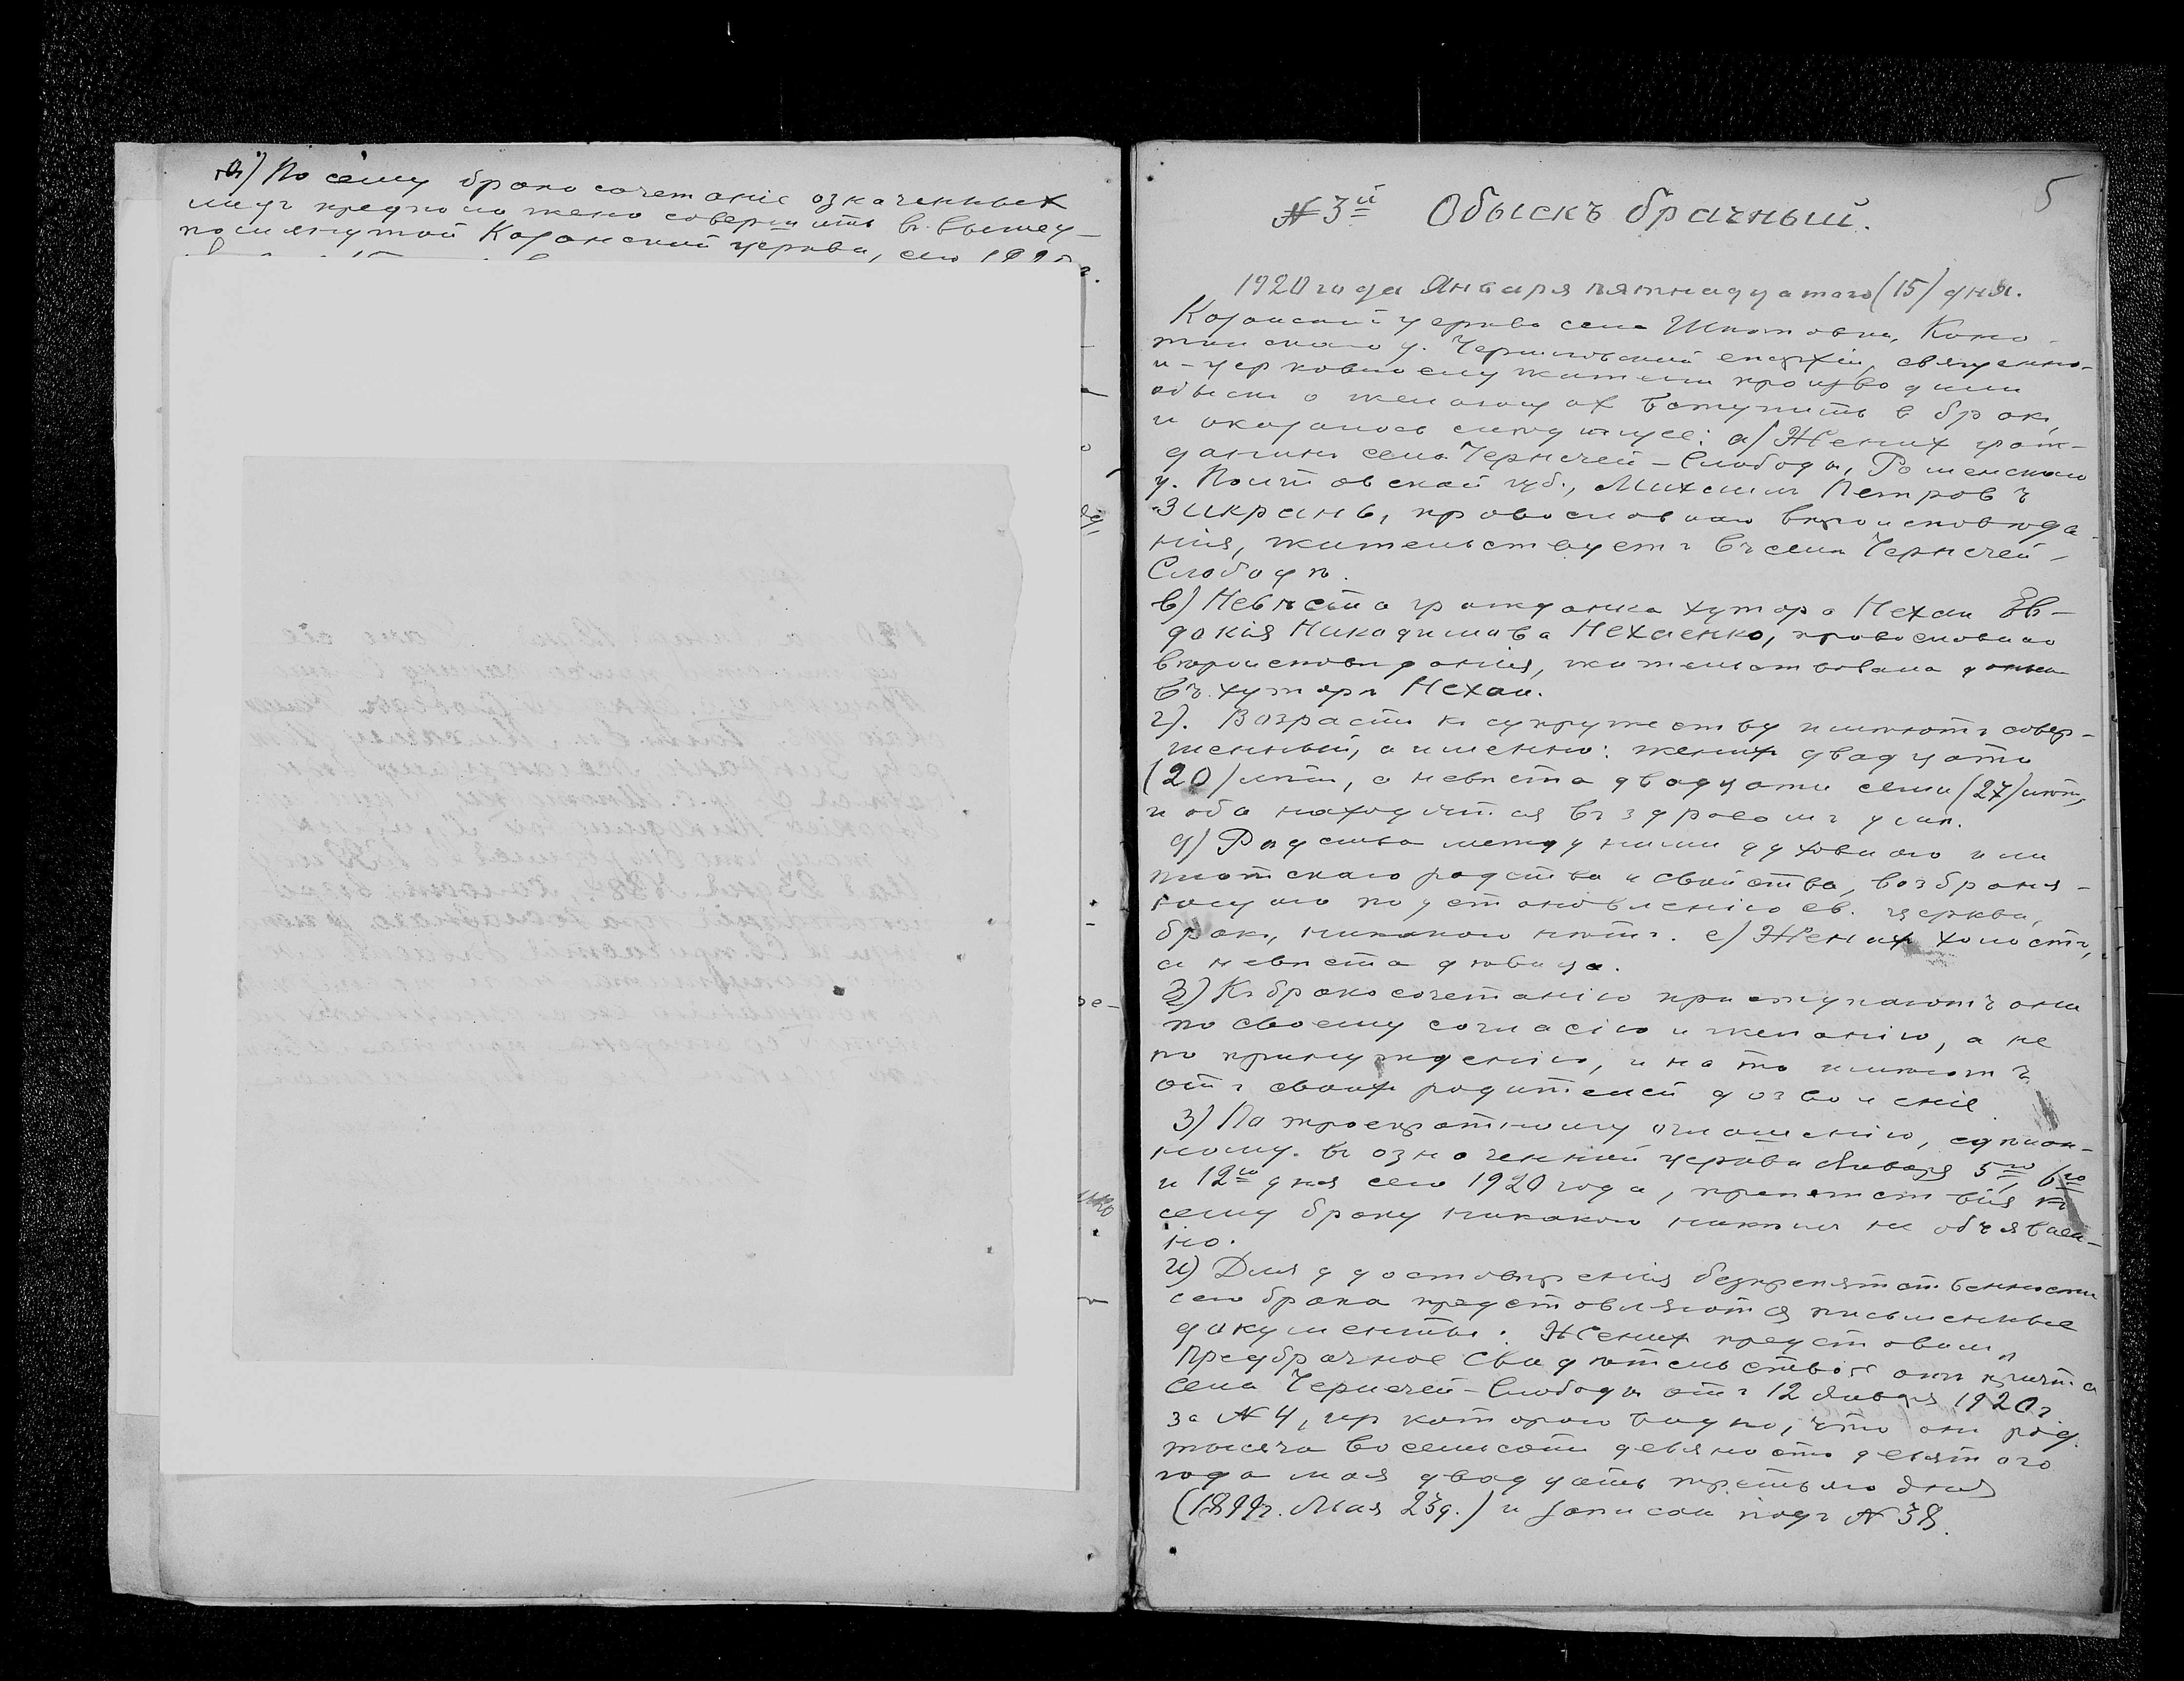 а) По сему бракосочетаніе означенныхъ
лицъ предположено совершить въ вышеу-
помянутой Казанской церкви, сего
5
№ 3й Обыскъ брачный.
1920 года Января пятнадцатаго (15) дня.
Казанской церкви села Шпотовки, Коно-
топскаго у. Черниговской епархіи, священно-
и-церковнослужители производили
обыск о желающих вступить в брак,
и оказалось следующее: а) Жених граж-
данин села Чернечей-Слободы, Роменскаго
у. Полтавской губ., Михаил Петровъ
Зикрань, православнаго вероисповеда-
нія, жительствуетъ въ селе Чернечей-
Слободѣ.
в) Невѣста гражданка хутора Нехаи Ев-
докія Никодимова Нехаенко, православнаго
вѣроисповѣданія, жительствовала донынѣ
въ хуторѣ Нехаи.
г). Возрастъ къ супружеству имѣютъ совер-
шенный, а именно: жених двадцати
(20) лѣтъ, а невѣста двадцати семи (27) лѣтъ,
и оба находятся въ здравомъ умѣ.
д) Родства между ними духовнаго или
плотскаго родства и свойства, возбраня-
ющаго по установленію св. церкви,
брак, никакого нѣтъ. е) Жених холостъ,
а невѣста дѣвица.
З) Къ бракосочетанію приступаютъ они
по своему согласію и желанію, а не
по принужденію, и на то имѣютъ
отъ своих родителей дозволеніе.
З) По троекратному оглашенію, сдѣлан-
ному въ означенной церкви Января 5го, 6го
и 12го дня сего 1920 года, препятствія къ
сему браку никакого никѣмъ не объявле-
но.
И) Для удостовѣренія безпрепятственности
сего брака представляются письменные
документы: Жених представилъ
предбрачное свидѣтельство отъ причта
села Чернечей-Слободы отъ 12 Января 1920 г.
за № 4, из котораго видно, что он род.
тысяча восемьсотъ девяносто девятого
года мая двадцать третьяго дня
(1899г. Мая 23д.) и записан подъ № 38.